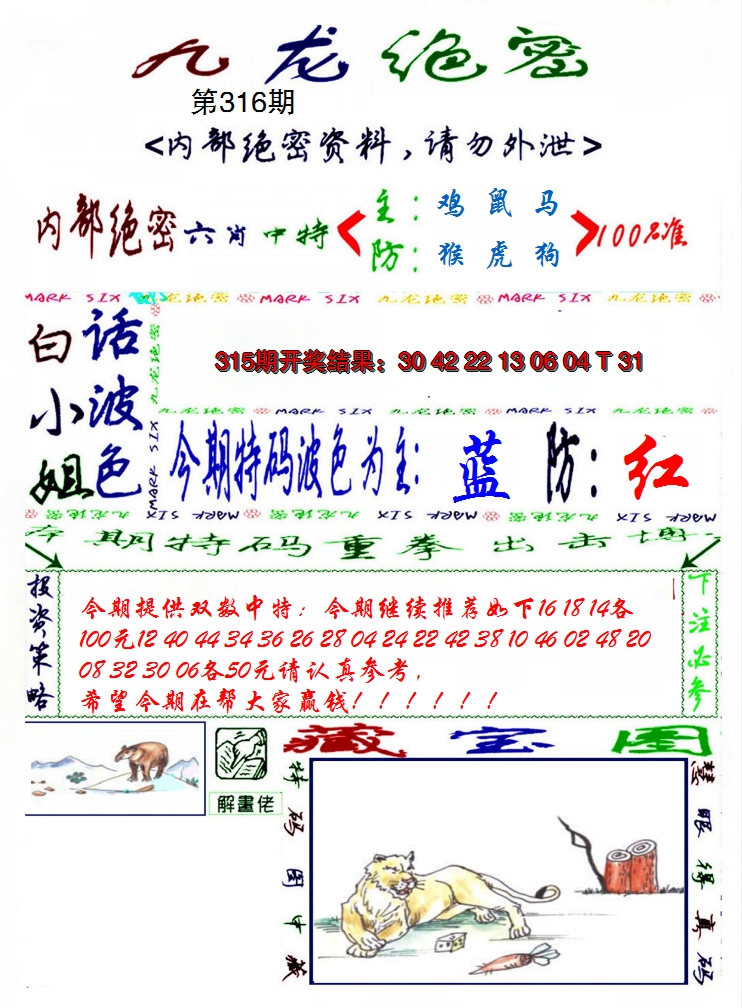 九龙绝密
第316期
<内部绝密资料,请勿外泄>
内部绝密六肖中特
主:鸡 鼠 马
防:猴 虎 狗
100%准
MARK SIX 九龙绝密 MARK SIX 九龙绝密 MARK SIX 九龙绝密
白小姐
话波色
九龙绝密
MARK SIX
315期开奖结果:30 42 22 13 06 04 T 31
九龙绝密 MARK SIX 九龙绝密 MARK SIX 九龙绝密
今期特码波色为主:蓝 防:红
九龙绝密 MARK SIX 九龙绝密 MARK SIX 九龙绝密 MARK SIX
本期特码重拳出击博
投资策略
今期提供双数中特;今期继续推荐如下16 18 14各
100元12 40 44 34 36 26 28 04 24 22 42 38 10 46 02 48 20
08 32 30 06各50元请认真参考,
希望今期在帮大家赢钱!!!!!!
下注必参
解畫佬
藏宝图
特码图中藏
慧眼得真码